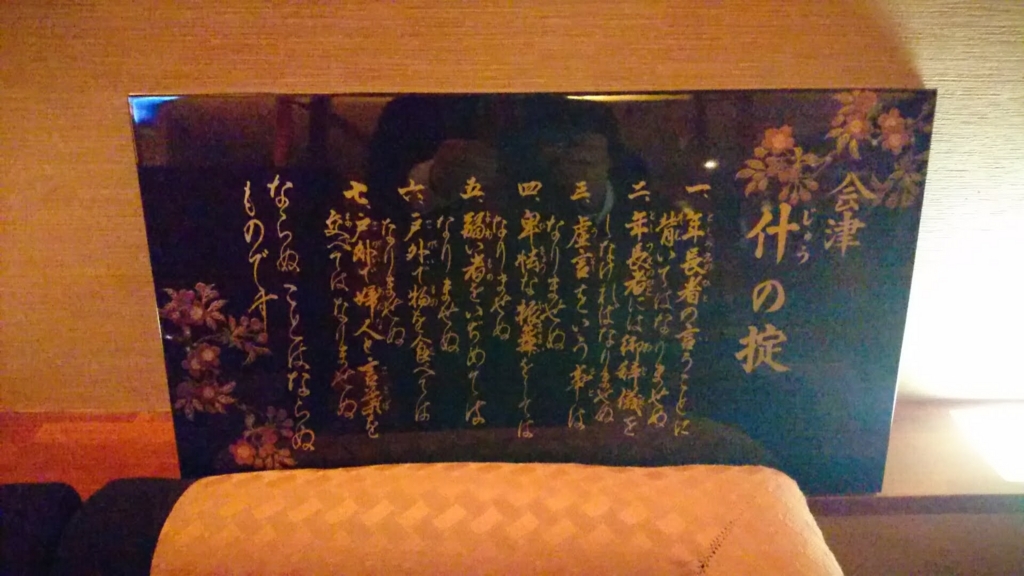 会津
什の掟
じゅう
一、年長者の言うことに
背いてはなりませぬ
二、年長者には御辞儀を
しなければなりませぬ
三、虚言をいう事は
なりませぬ
四、卑怯な振舞をしては
なりませぬ
五、弱い者をいぢめては
なりませぬ
六、戸外で物を食べては
なりませぬ
七、戸外で婦人と言葉を
交へてはなりませぬ
ならぬことはならぬ
ものです